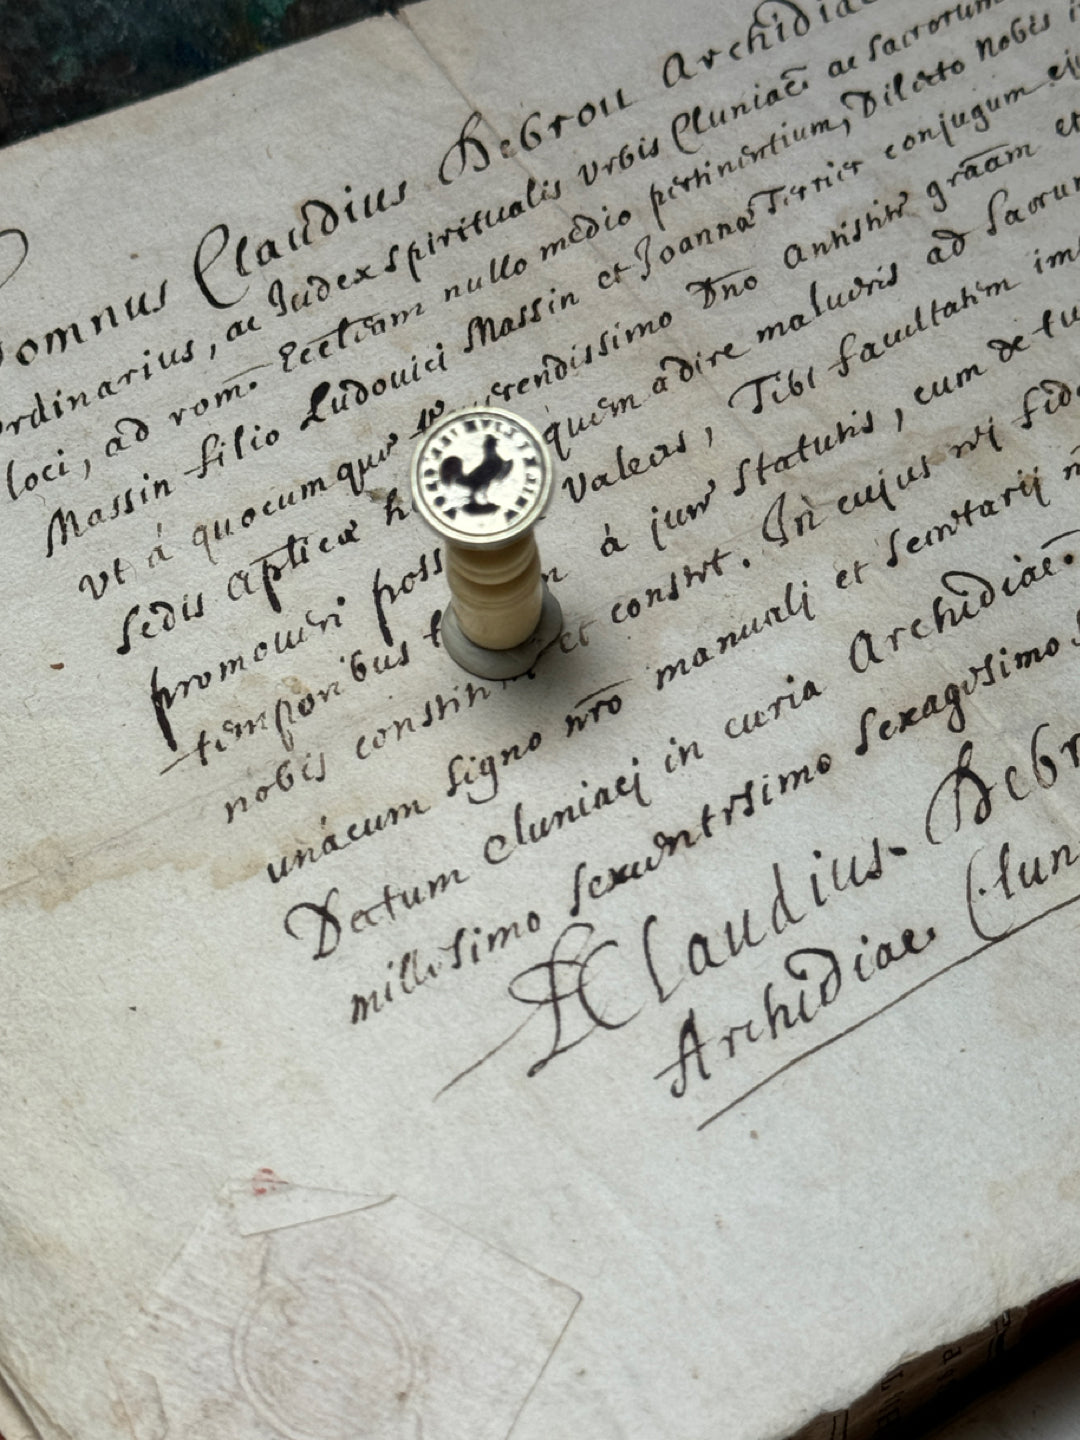 Domnus Claudius Hebron Archidiac
Ordinarius, ac Judex spiritualis urbis Cluniacē ac sacrorum
loci, ad rom. Eccl̄iam nullo medio pertinentium, Dilecto Nobis
Massin filio Ludovici Massin et Joannæ Terrier conjugum ej
vt á quocumque erendissimo Dn̄o Antistite grāam et
sedis Ap̄licæ quem adire malueris ad sacru
promoueri poss valeas, Tibi facultatem im
temporibus á jure statutis, cum de tu
nobis constiterit et constet. In cujus rei fide
unácum signo nr̄o manuali et secretarij
Datum Cluniaci in curia Archidiac.
millesimo sexcentesimo sexagesimo
Claudius Hebr
Archidiac. Clun